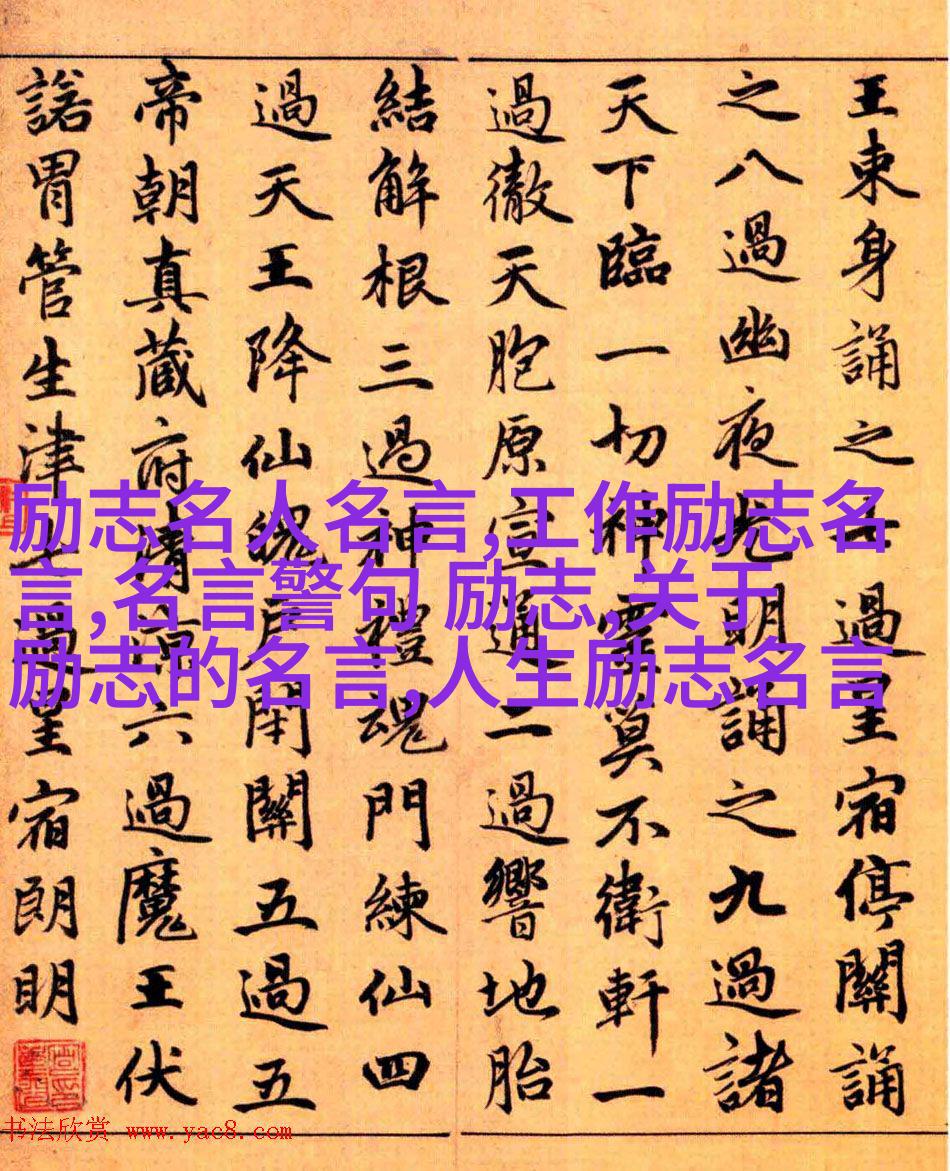 王束身誦之七過星宿停關誦
之八過幽夜光明誦之九過諸
天下臨一切神靈莫不衛軒一
過徹天胞原宣通二過響地胎
結解根三過神禮魂門練仙四
過天王降仙魄戶閉關五過五
帝朝真藏府清涼六過魔王伏
諾胃管生津七過星宿朗明
励志名人名言,工作励志名
言,名言警句 励志,关于
励志的名言,人生励志名言
书法欣赏 www.yac8.com